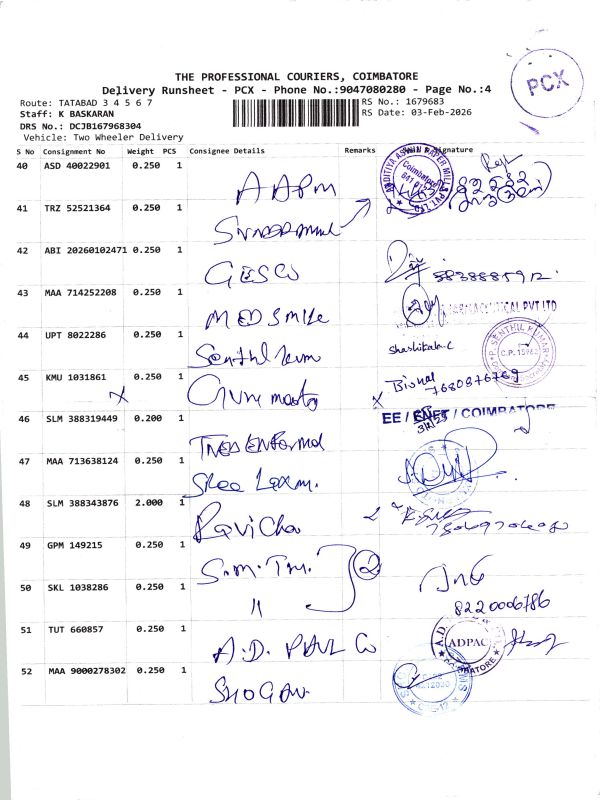 THE PROFESSIONAL COURIERS, COIMBATORE
Delivery Runsheet - PCX - Phone No.:9047080280 - Page No.:4
PCX
Route: TATABAD 3 4 5 6 7
RS No.: 1679683
Staff: K BASKARAN
RS Date: 03-Feb-2026
DRS No.: DCJB167968304
Vehicle: Two Wheeler Delivery
S No Consignment No Weight PCS Consignee Details Remarks Signature
40 ASD 40022901 0.250 1 AAPM
Coimbatore
41 TRZ 52521364 0.250 1
42 ABI 20260102471 0.250 1 GESCO
43 MAA 714252208 0.250 1 MEDSmile PVT LTD
44 UPT 8022286 0.250 1 Senthil kum Shashikala.C
P. SENTHIL KUMAR
C.P. 15962
45 KMU 1031861 0.250 1 X Guru X Bishal
7680876769
46 SLM 388319449 0.200 1 EE / / COIMBATORE
47 MAA 713638124 0.250 1 Sree Laxm.
48 SLM 388343876 2.000 1 Ravicha
49 GPM 149215 0.250 1 S.M.Tm. 2
50 SKL 1038286 0.250 1 "
8220006786
51 TUT 660857 0.250 1 A.D. PAUL Co
A.D. ADPAC COIMBATORE
52 MAA 9000278302 0.250 1 SHOGAN